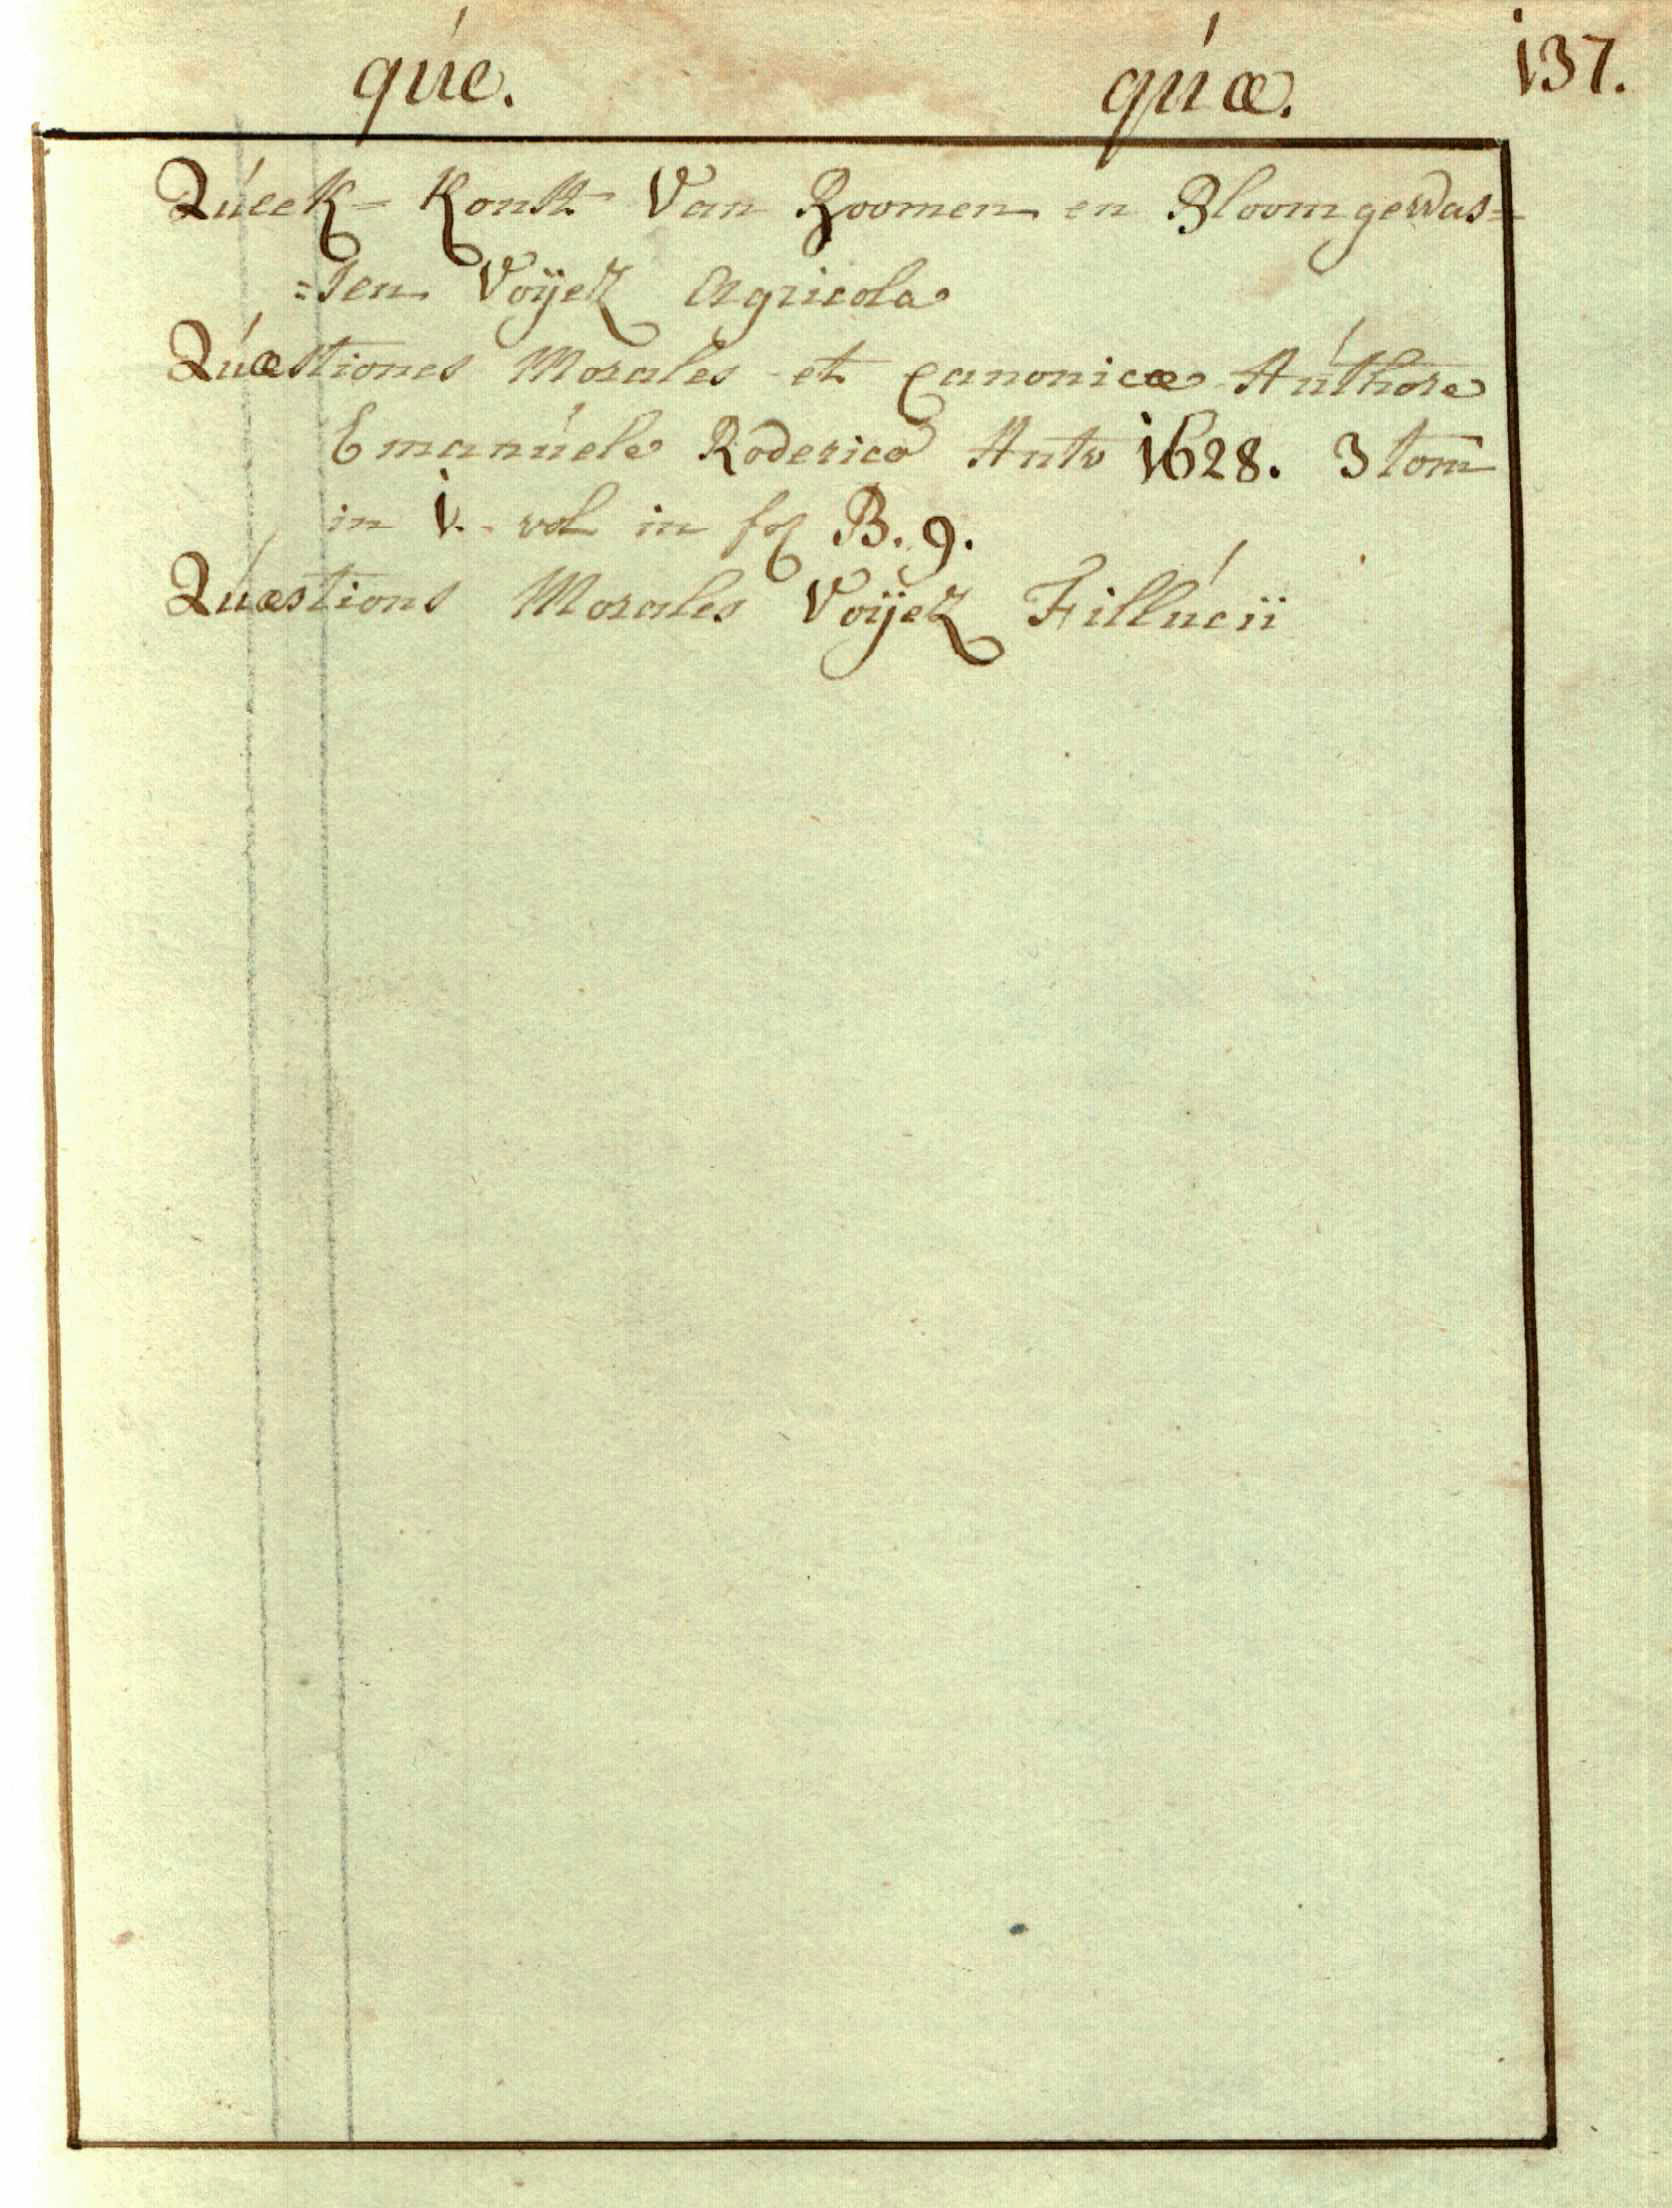 que. quæ. 137.
Queek= Konst Van Boomen en Bloomgewas=
=sen Voÿez Agricola
Quæstiones Morales et Canonicæ Authore
Emanuele Roderico Antv 1628. 3 tom
in 1. vol in fol B. 9.
Quæstions Morales Voÿez Fillucii